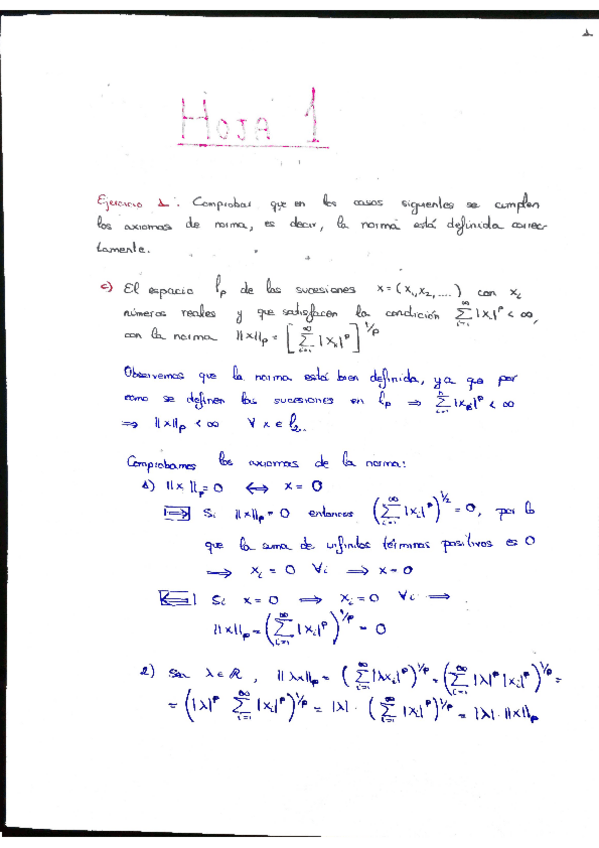 1
HOJA 1
Ejercicio 1. Comprobar que en los casos siguientes se cumplen
los axiomas de norma, es decir, la norma está definida correc-
tamente.
c) El espacio lp de las sucesiones x = (x₁, x₂, ....) con xᵢ
números reales y que satisfacen la condición ∑_{i=1}^{∞} |xᵢ|^p < ∞,
con la norma ||x||p = [∑_{i=1}^{∞} |xᵢ|^p]^{1/p}
Observemos que la norma está bien definida, ya que por
como se definen las sucesiones en lp ⇒ ∑ |xᵢ|^p < ∞
⇒ ||x||p < ∞ ∀ x ∈ l₂.
Comprobamos los axiomas de la norma:
1) ||x||p = 0 ⟷ x = 0
⇒| Si ||x||p = 0 entonces (∑_{i=1}^{∞} |xᵢ|^p)^{1/2} = 0, por lo
que la suma de infinitos términos positivos es 0
⇒ xᵢ = 0 ∀i ⇒ x = 0
⇐| Si x = 0 ⇒ xᵢ = 0 ∀i ⇒
||x||p = (∑_{i=1}^{∞} |xᵢ|^p)^{1/p} = 0
2) Sea λ ∈ ℝ, ||λx||p = (∑_{i=1}^{∞} |λxᵢ|^p)^{1/p} = (∑_{i=1}^{∞} |λ|^p |xᵢ|^p)^{1/p} =
= (|λ|^p ∑_{i=1}^{∞} |xᵢ|^p)^{1/p} = |λ| · (∑_{i=1}^{∞} |xᵢ|^p)^{1/p} = |λ| · ||x||p